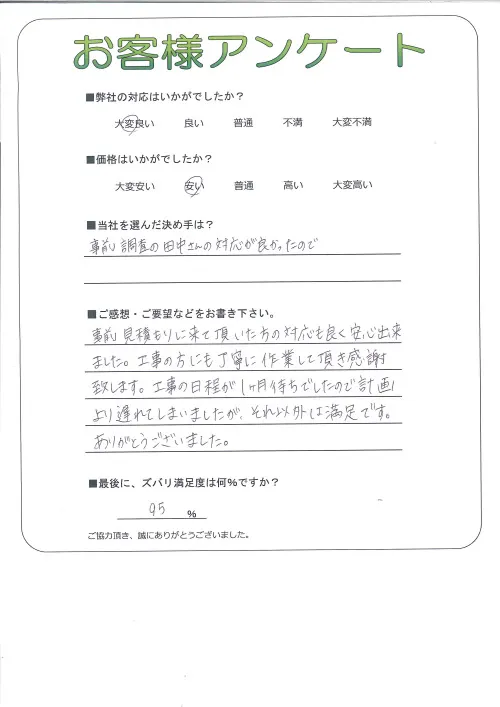 お客様アンケート
■弊社の対応はいかがでしたか？
大変良い 良い 普通 不満 大変不満
■価格はいかがでしたか？
大変安い 安い 普通 高い 大変高い
■当社を選んだ決め手は？
事前調査の田中さんの対応が良かったので
■ご感想・ご要望などをお書き下さい。
事前見積もりに来て頂いた方の対応も良く安心出来
ました。工事の方にも丁寧に作業して頂き感謝
致します。工事の日程が1ヶ月待ちでしたので計画
より遅れてしまいましたが、それ以外は満足です。
ありがとうございました。
■最後に、ズバリ満足度は何%ですか？
95 %
ご協力頂き、誠にありがとうございました。